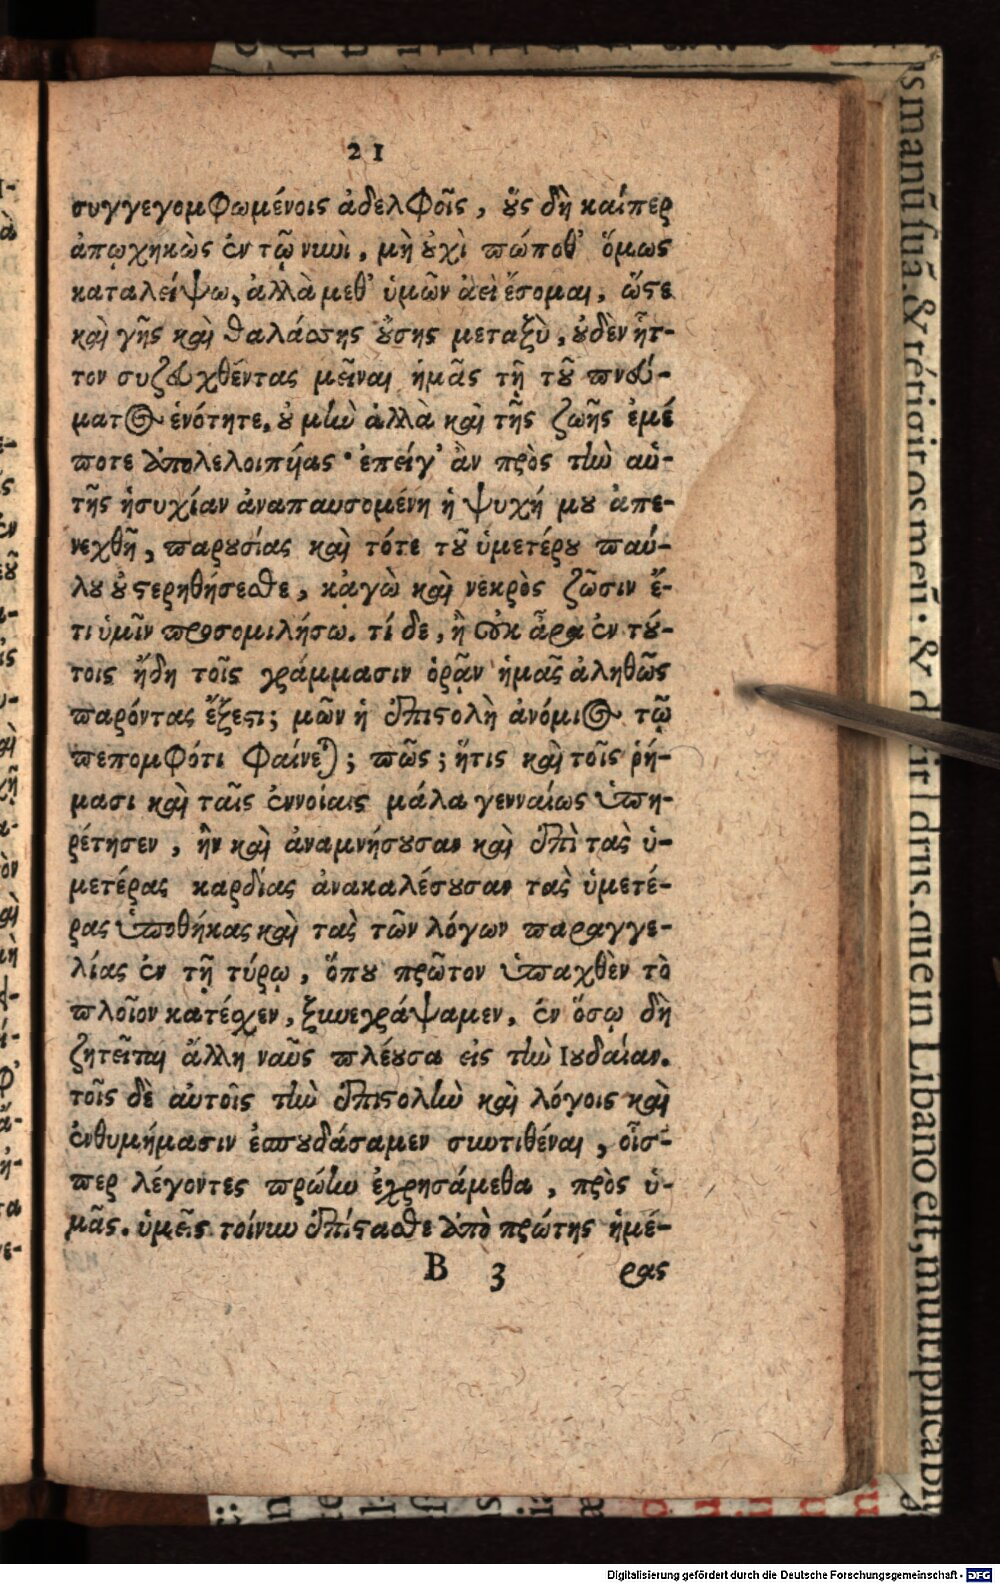 21
συγγεγομφωμένοις ἀδελφοῖς, οὓς δὴ καίπερ
ἀπῳχηκὼς ἐν τῷ νῦν, μὴ οὐχὶ πώποθ' ὅμως
καταλείψω, ἀλλὰ μεθ' ὑμῶν ἀεὶ ἔσομαι, ὥστε
καὶ γῆς καὶ θαλάσσης οὔσης μεταξὺ, οὐδὲν ἧτ-
τον συζευχθέντας μεῖναι ἡμᾶς τῇ τοῦ πνεύ-
ματος ἑνότητε, οὐ μὴν ἀλλὰ καὶ τῆς ζωῆς ἐμέ
ποτε ἀπολελοιπυίας· ἐπείγ' ἂν πρὸς τὴν αὐ-
τῆς ἡσυχίαν ἀναπαυσομένη ἡ ψυχή μου ἀπε-
νεχθῇ, παρουσίας καὶ τότε τοῦ ὑμετέρου παύ-
λου ὑστερηθήσεσθε, κᾀγὼ καὶ νεκρὸς ζῶσιν ἔ-
τι ὑμῖν προσομιλήσω. τί δε, ἢ οὐκ ἆρα ἐν τού-
τοις ἤδη τοῖς γράμμασιν ὁρᾷν ἡμᾶς ἀληθῶς
παρόντας ἔξεστι; μῶν ἡ ἐπιστολὴ ἀνόμιος τῷ
πεπομφότι φαίνεται; πῶς; ἥτις καὶ τοῖς ῥή-
μασι καὶ ταῖς ἐννοίαις μάλα γενναίως ὑπη-
ρέτησεν, ἣν καὶ ἀναμνήσουσαν καὶ ἐπὶ τὰς ὑ-
μετέρας καρδίας ἀνακαλέσουσαν τὰς ὑμετέ-
ρας ὑποθήκας καὶ τὰς τῶν λόγων παραγγε-
λίας ἐν τῇ τύρῳ, ὅπου πρῶτον ὑπαχθὲν τὸ
πλοῖον κατέσχεν, ξυνεγράψαμεν, ἐν ὅσῳ δὴ
ζητεῖται ἄλλη ναῦς πλέουσα εἰς τὴν Ιουδαίαν.
τοῖς δὲ αὐτοῖς τὴν ἐπιστολὴν καὶ λόγοις καὶ
ἐνθυμήμασιν ἐσπουδάσαμεν συντιθέναι, οἷσ-
περ λέγοντες πρώην ἐχρησάμεθα, πρὸς ὑ-
μᾶς. ὑμεῖς τοίνυν ἐπίστασθε ἀπὸ πρώτης ἡμέ-
B 3 ρας
Digitalisierung gefördert durch die Deutsche Forschungsgemeinschaft - DFG